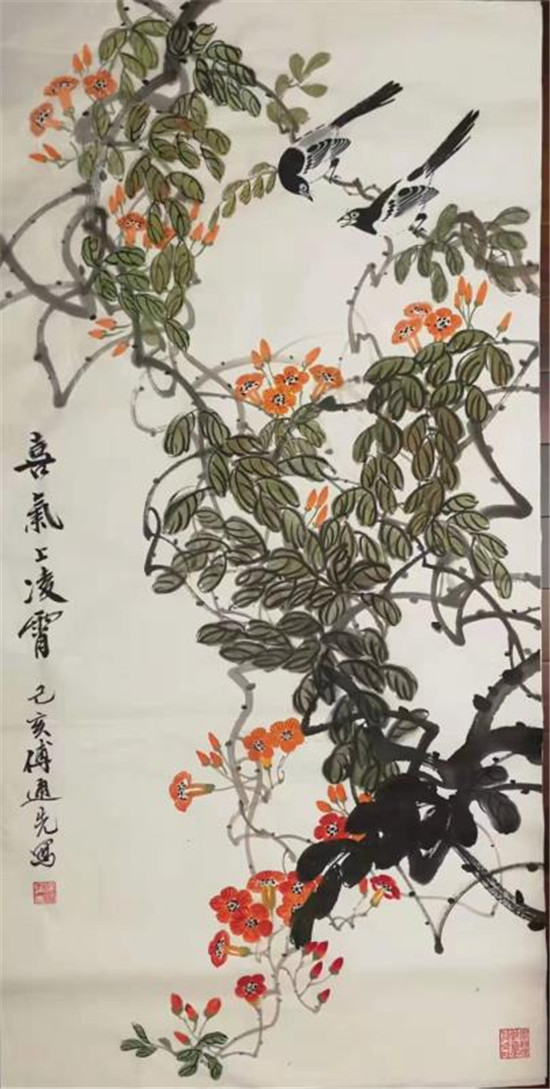 喜氣上凌霄
己亥傅通先寫